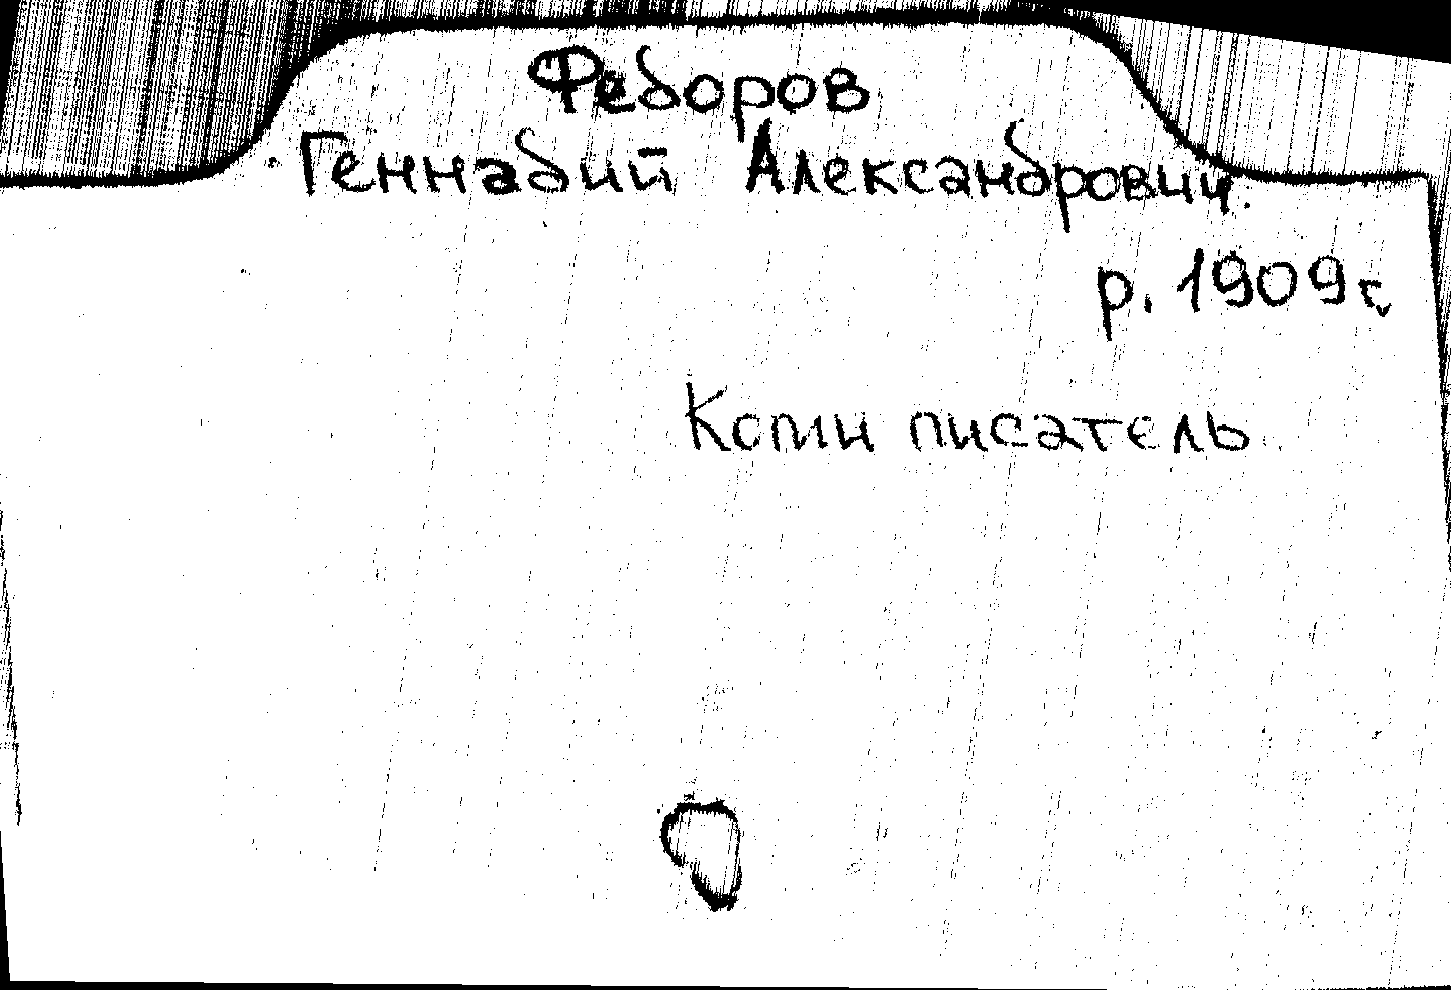 Федоров
Геннадий Александрович.
р. 1909 г.
Коми писатель